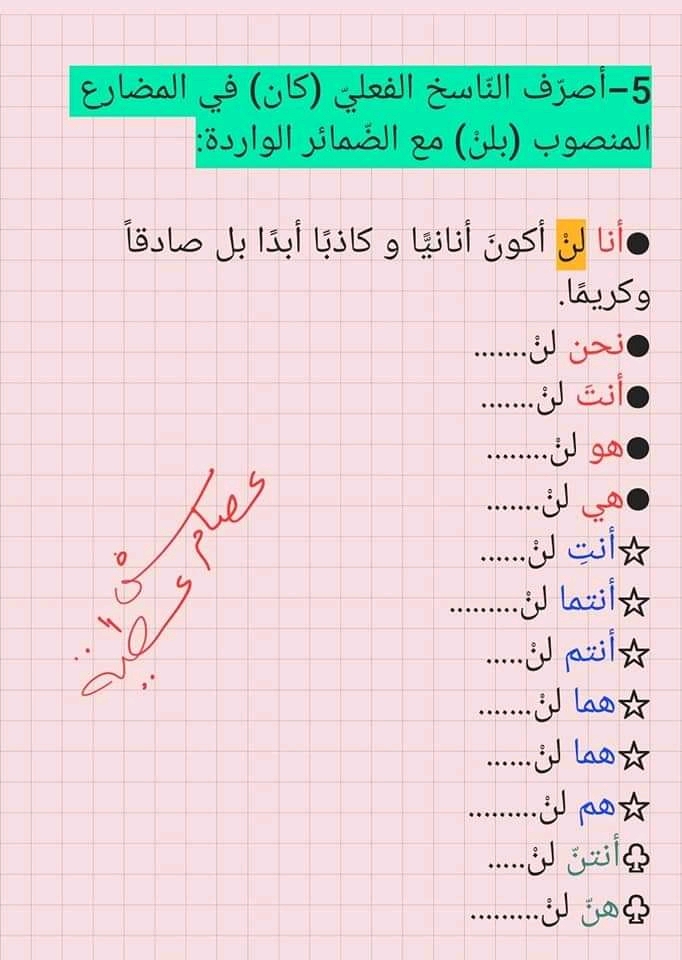 5–أصرّف النّاسخ الفعليّ (كان) في المضارع
المنصوب (بلنْ) مع الضّمائر الواردة:
●أنا لنْ أكونَ أنانيًّا و كاذبًا أبدًا بل صادقاً
وكريمًا.
●نحن لنْ.......
●أنتَ لنْ.......
●هو لنْ........
●هي لنْ.......
☆أنتِ لنْ......
☆أنتما لنْ.........
☆أنتم لنْ.....
☆هما لنْ.......
☆هما لنْ......
☆هم لنْ.........
♧أنتنّ لنْ.....
♧هنّ لنْ.........
عصام